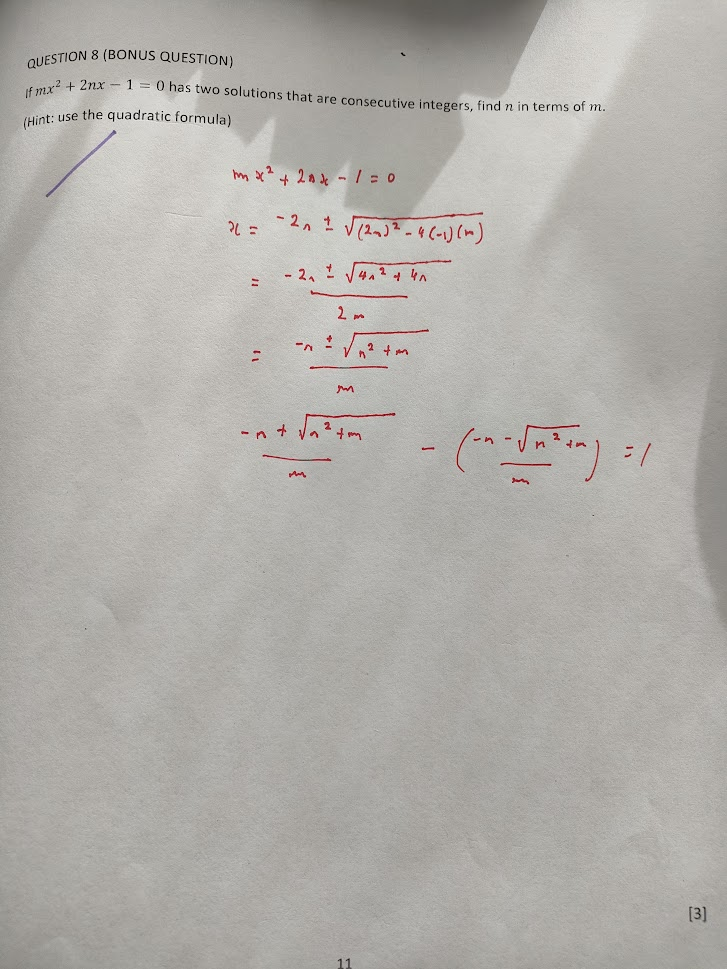 QUESTION 8 (BONUS QUESTION)
If mx² + 2nx − 1 = 0 has two solutions that are consecutive integers, find n in terms of m.
(Hint: use the quadratic formula)
mx² + 2nx - 1 = 0
x = -2n ± √((2n)² - 4(-1)(m))
= (-2n ± √(4n² + 4n)) / 2m
= (-n ± √(n² + m)) / m
(-n + √(n² + m)) / m - ((-n - √(n² + m)) / m) = 1
[3]
11